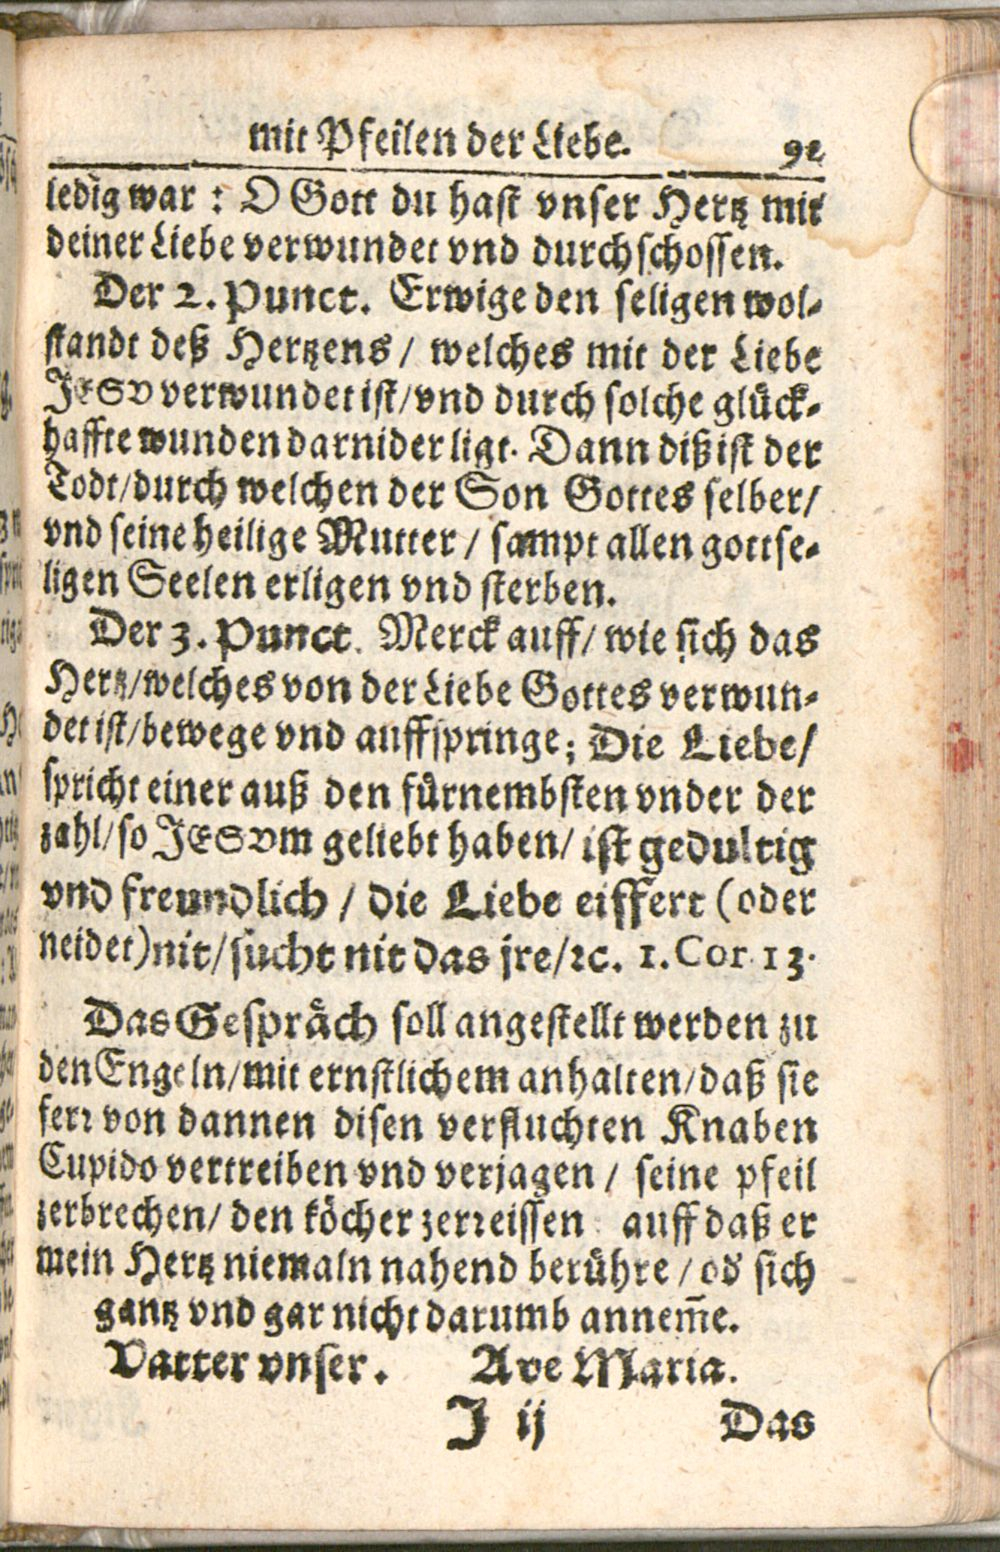 mit Pfeilen der Liebe.
ledig war : O Gott du hast vnser Hertz mit
deiner Liebe verwundet vnd durchschossen.
Der 2. Punct. Erwige den seligen wol-
standt deß Hertzens / welches mit der Liebe
JESV verwundet ist/vnd durch solche glück-
haffte wunden darnider ligt. Dann diß ist der
Todt/durch welchen der Son Gottes selber/
vnd seine heilige Mutter / sampt allen gottse-
ligen Seelen erligen vnd sterben.
Der 3. Punct. Merck auff/ wie sich das
Hertz/welches von der Liebe Gottes verwun-
det ist/bewege vnd auffspringe; Die Liebe/
spricht einer auß den fürnembsten vnder der
zahl/so JESVm geliebt haben/ ist gedultig
vnd freundlich / die Liebe eiffert (oder
neidet)nit/sucht nit das jre/ꝛc. 1. Cor 13.
Das Gespräch soll angestellt werden zu
den Engeln/mit ernstlichem anhalten/daß sie
ferꝛ von dannen disen verfluchten Knaben
Cupido vertreiben vnd verjagen / seine pfeil
zerbrechen/ den köcher zerꝛeissen auff daß er
mein Hertz niemaln nahend berühre / od sich
gantz vnd gar nicht darumb annem̄e.
Vatter vnser. Ave Maria.
J ij Das